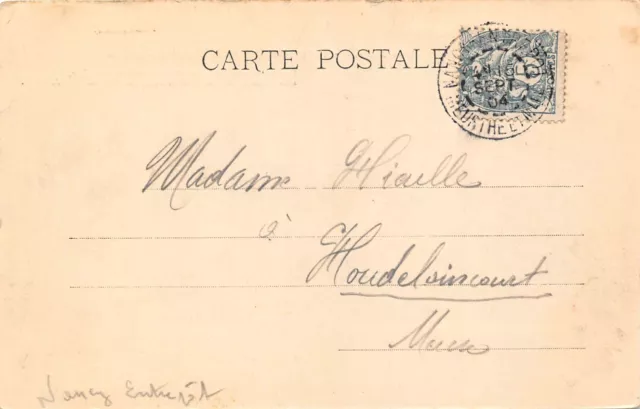 CARTE POSTALE
16
SEPT
04
MEURTHE ET M
Madame Hielle
à
Houdelaincourt
Meuse
Nancy Entrepôt